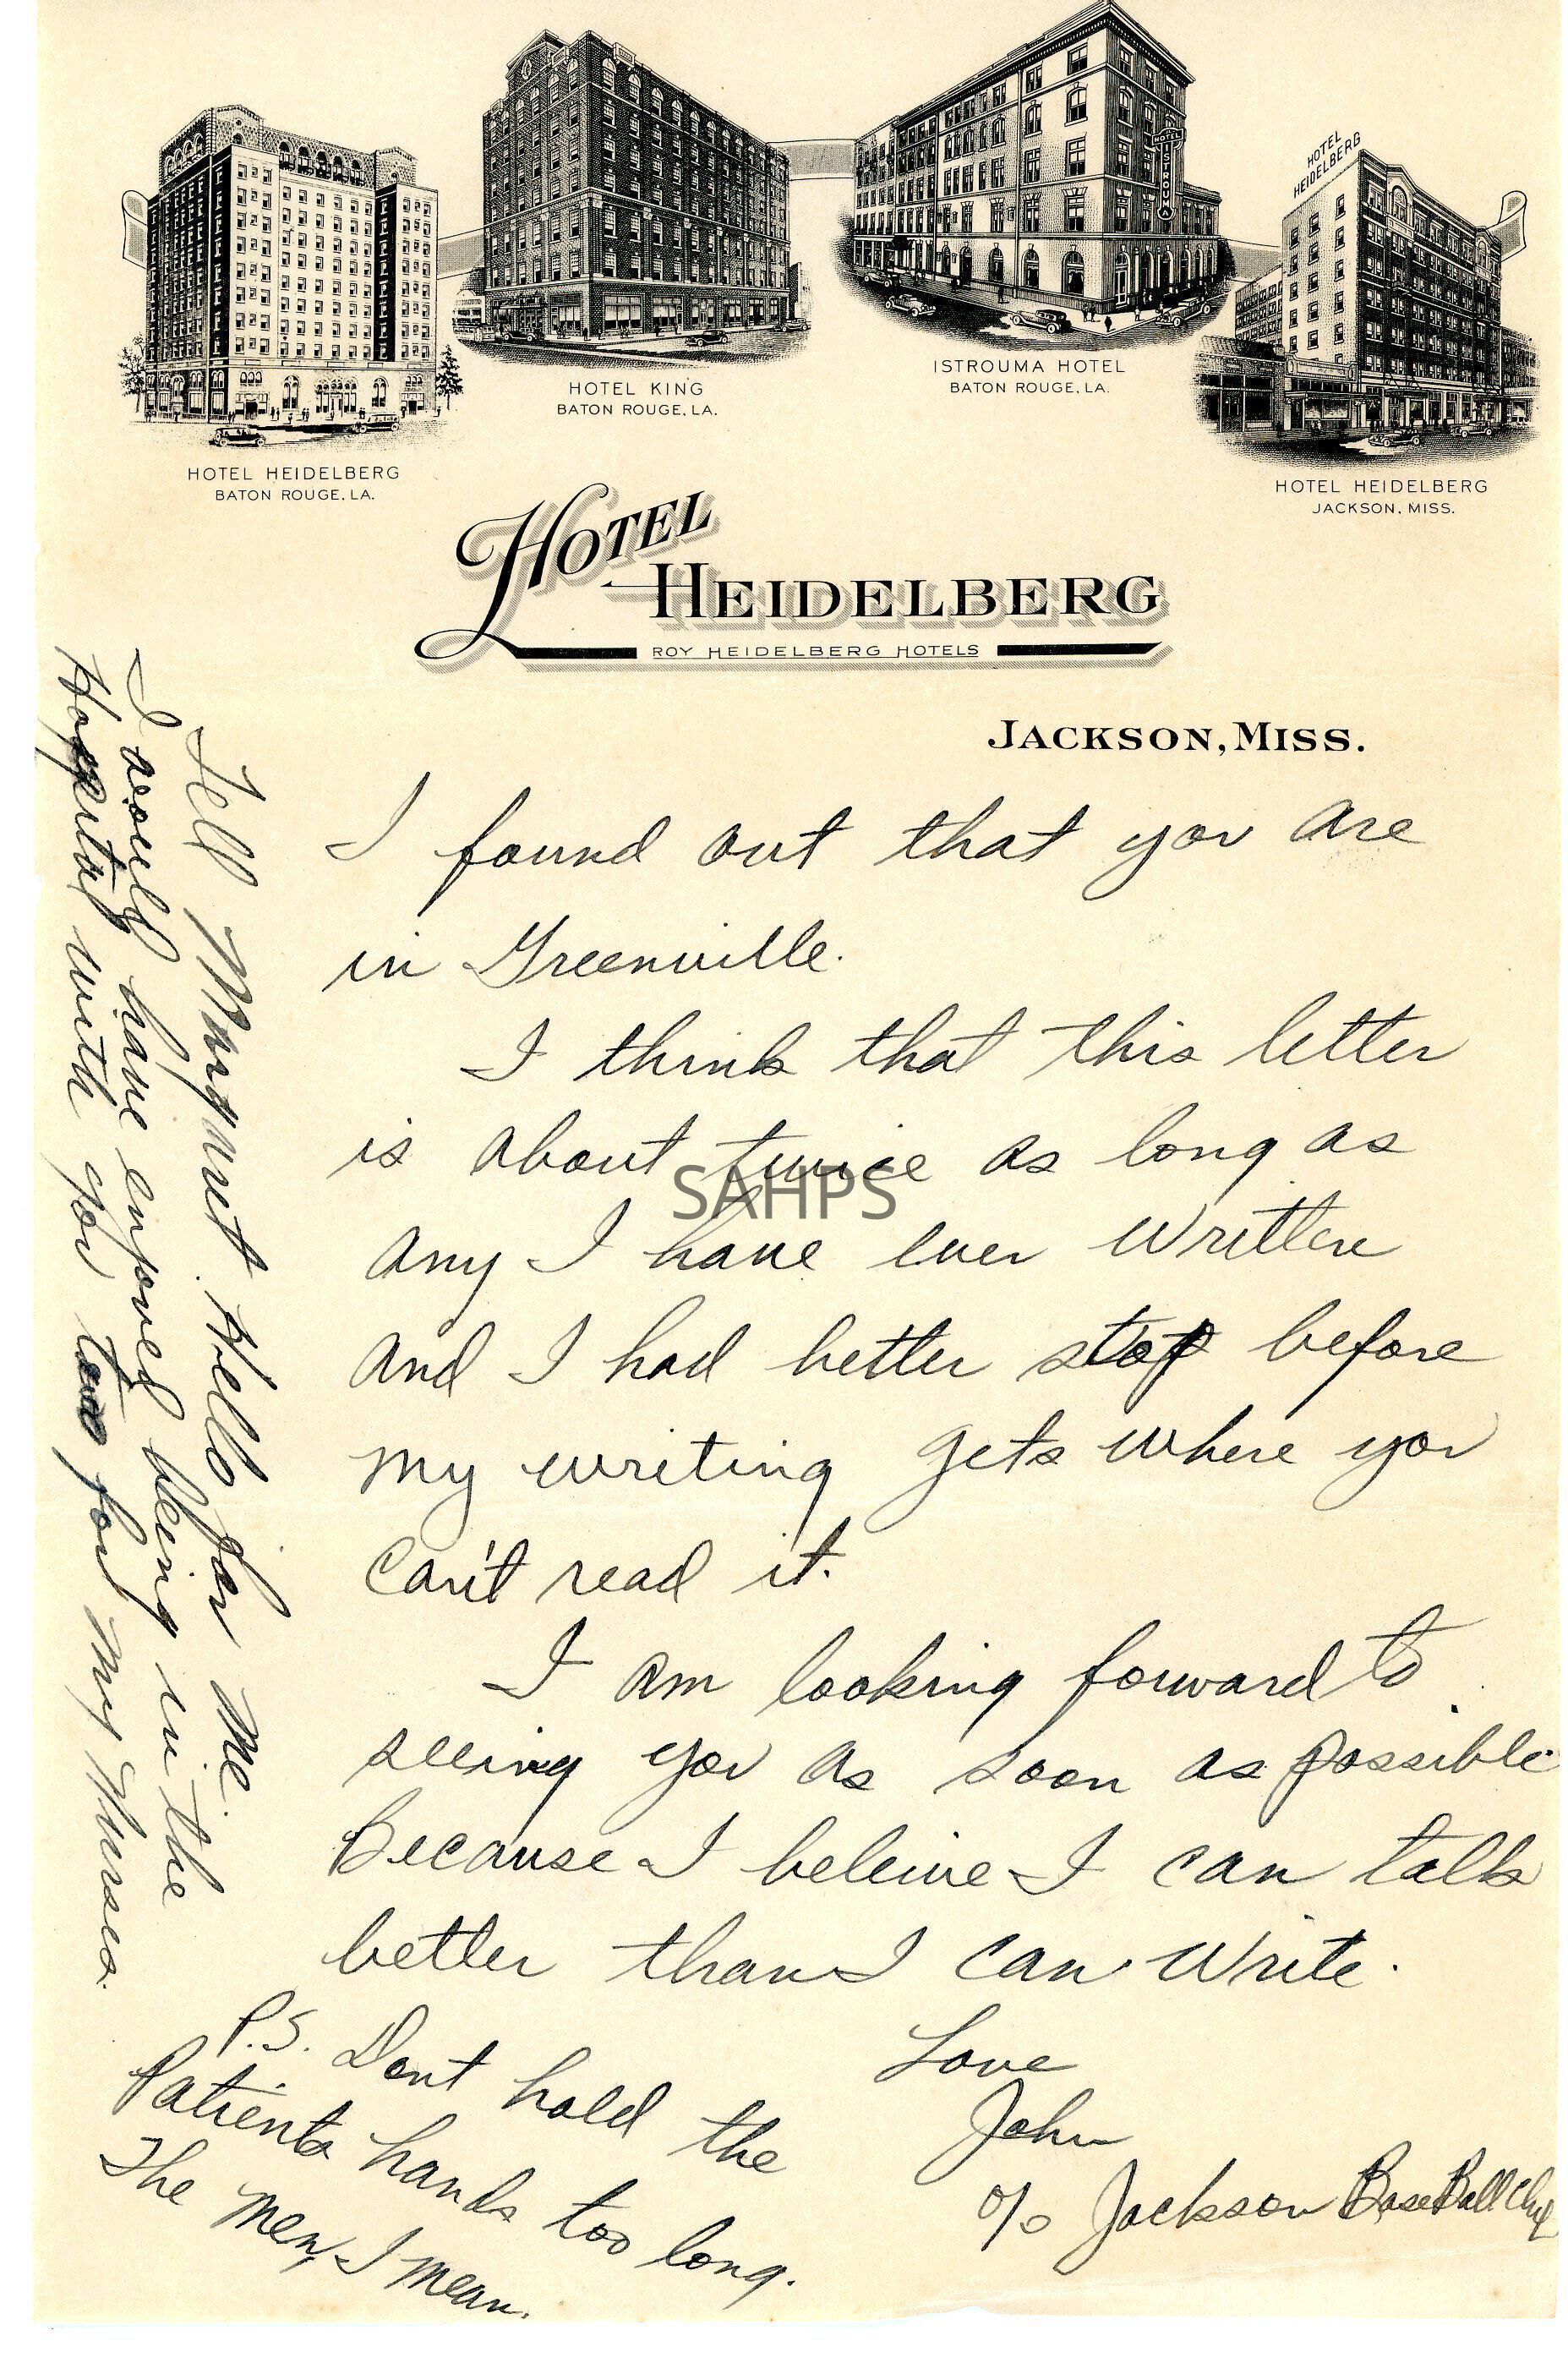 HOTEL HEIDELBERG
BATON ROUGE, LA.
HOTEL KING
BATON ROUGE, LA.
ISTROUMA
ISTROUMA HOTEL
BATON ROUGE, LA.
HOTEL
HEIDELBERG
HOTEL HEIDELBERG
JACKSON, MISS.
HOTEL
HEIDELBERG
ROY HEIDELBERG HOTELS
JACKSON, MISS.
I found out that you are
in Greenville.
I think that this letter
is about twice as long as
SAHPS
any I have ever written
and I had better stop before
my writing gets where you
can't read it.
I am looking forward to
seeing you as soon as possible
Because I beleive I can talk
better than I can write.
Love
John
c/o Jackson BaseBall Club
P.S. Dont hold the
Patients hands too long.
The men, I mean.
Tell Margaret Hello for me.
I would have enjoyed being in the
Hospital with you two for my Nurses.